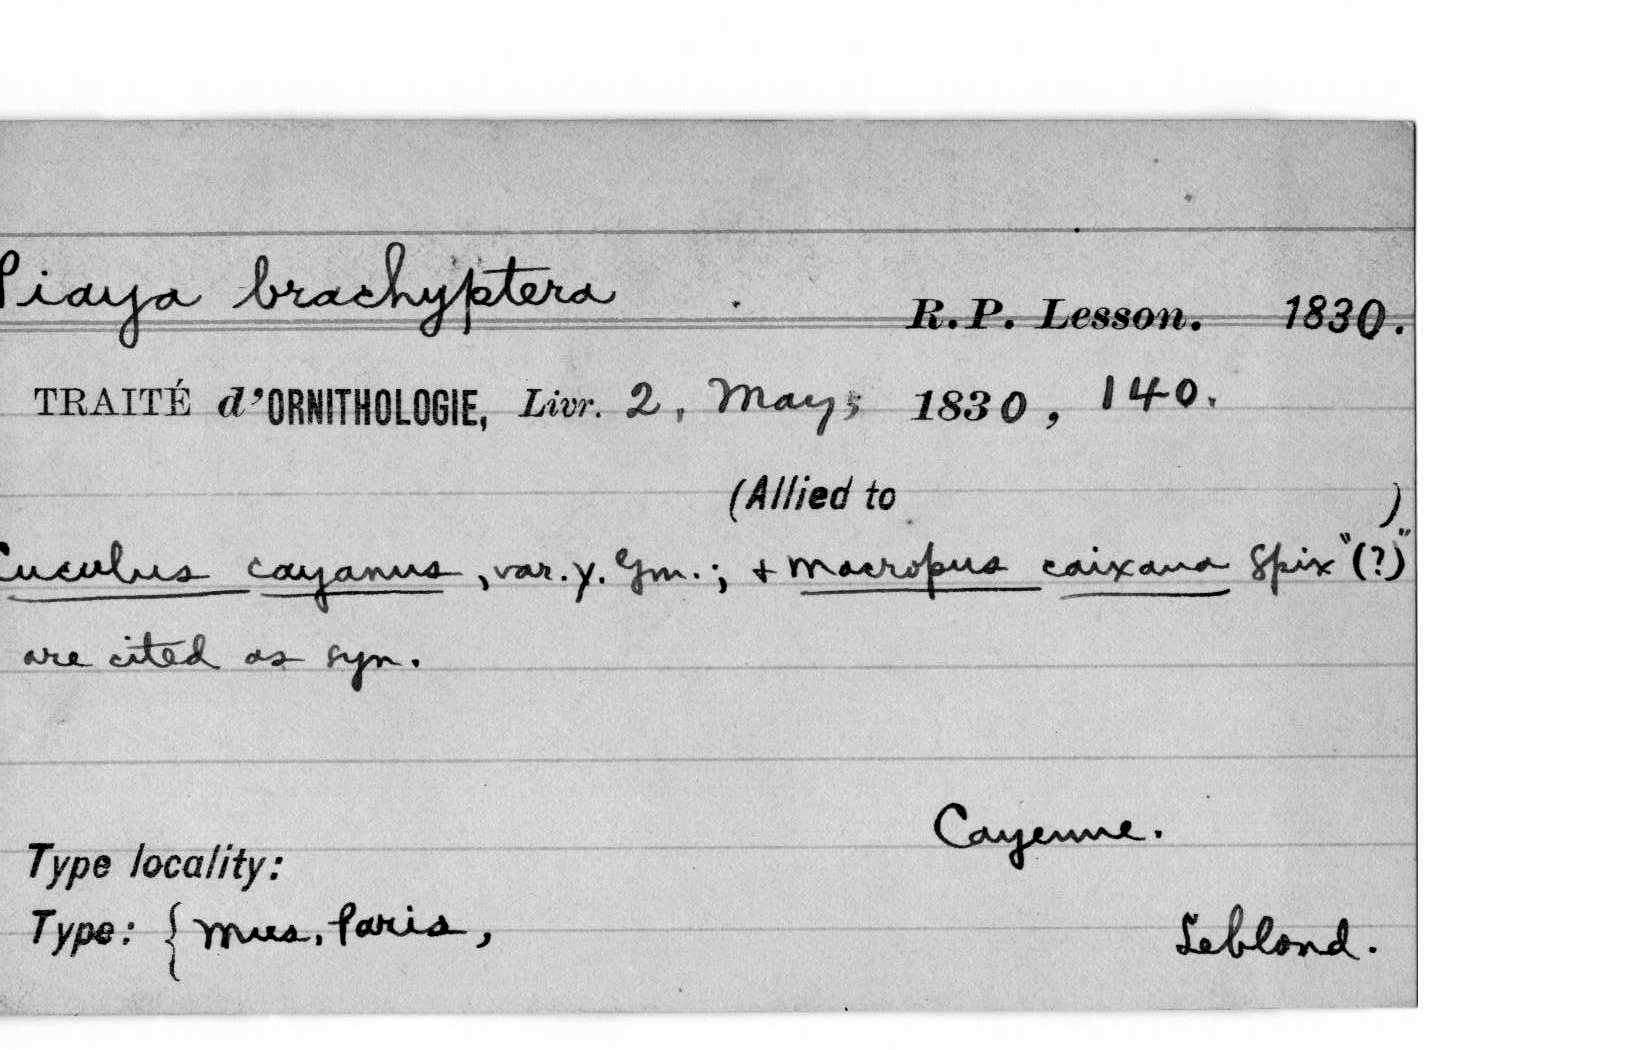 Piaya brachyptera R.P. Lesson. 1830.
TRAITÉ d'ORNITHOLOGIE, Livr. 2, May, 1830, 140.
(Allied to )
Cuculus cayanus, var. γ. Gm.; + Macropus caixana Spix "(?)"
are cited as syn.
Cayenne.
Type locality:
Type: { Mus. Paris, Leblond.